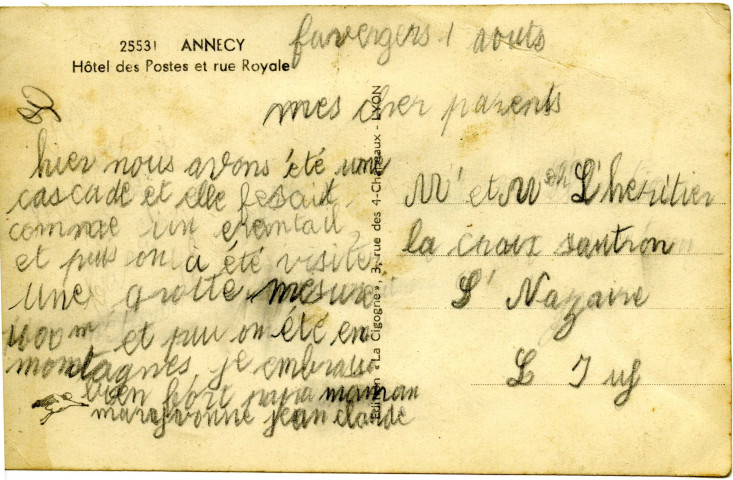 25531 ANNECY
Hôtel des Postes et rue Royale
favergers 1 aouts
mes cher parents
hier nous avons été une
cascade et elle fesait
comme un evantail
et puis on a été visite
une grotte mesure
et puu on été en
montagnes je embrasse
bien fort papa maman
maryvonne jean claude
Edition "La Cigogne", 3, rue des 4-Chapeaux - LYON
Mr et Mme L'heritier
la croix sautron
St Nazaire
L Inf